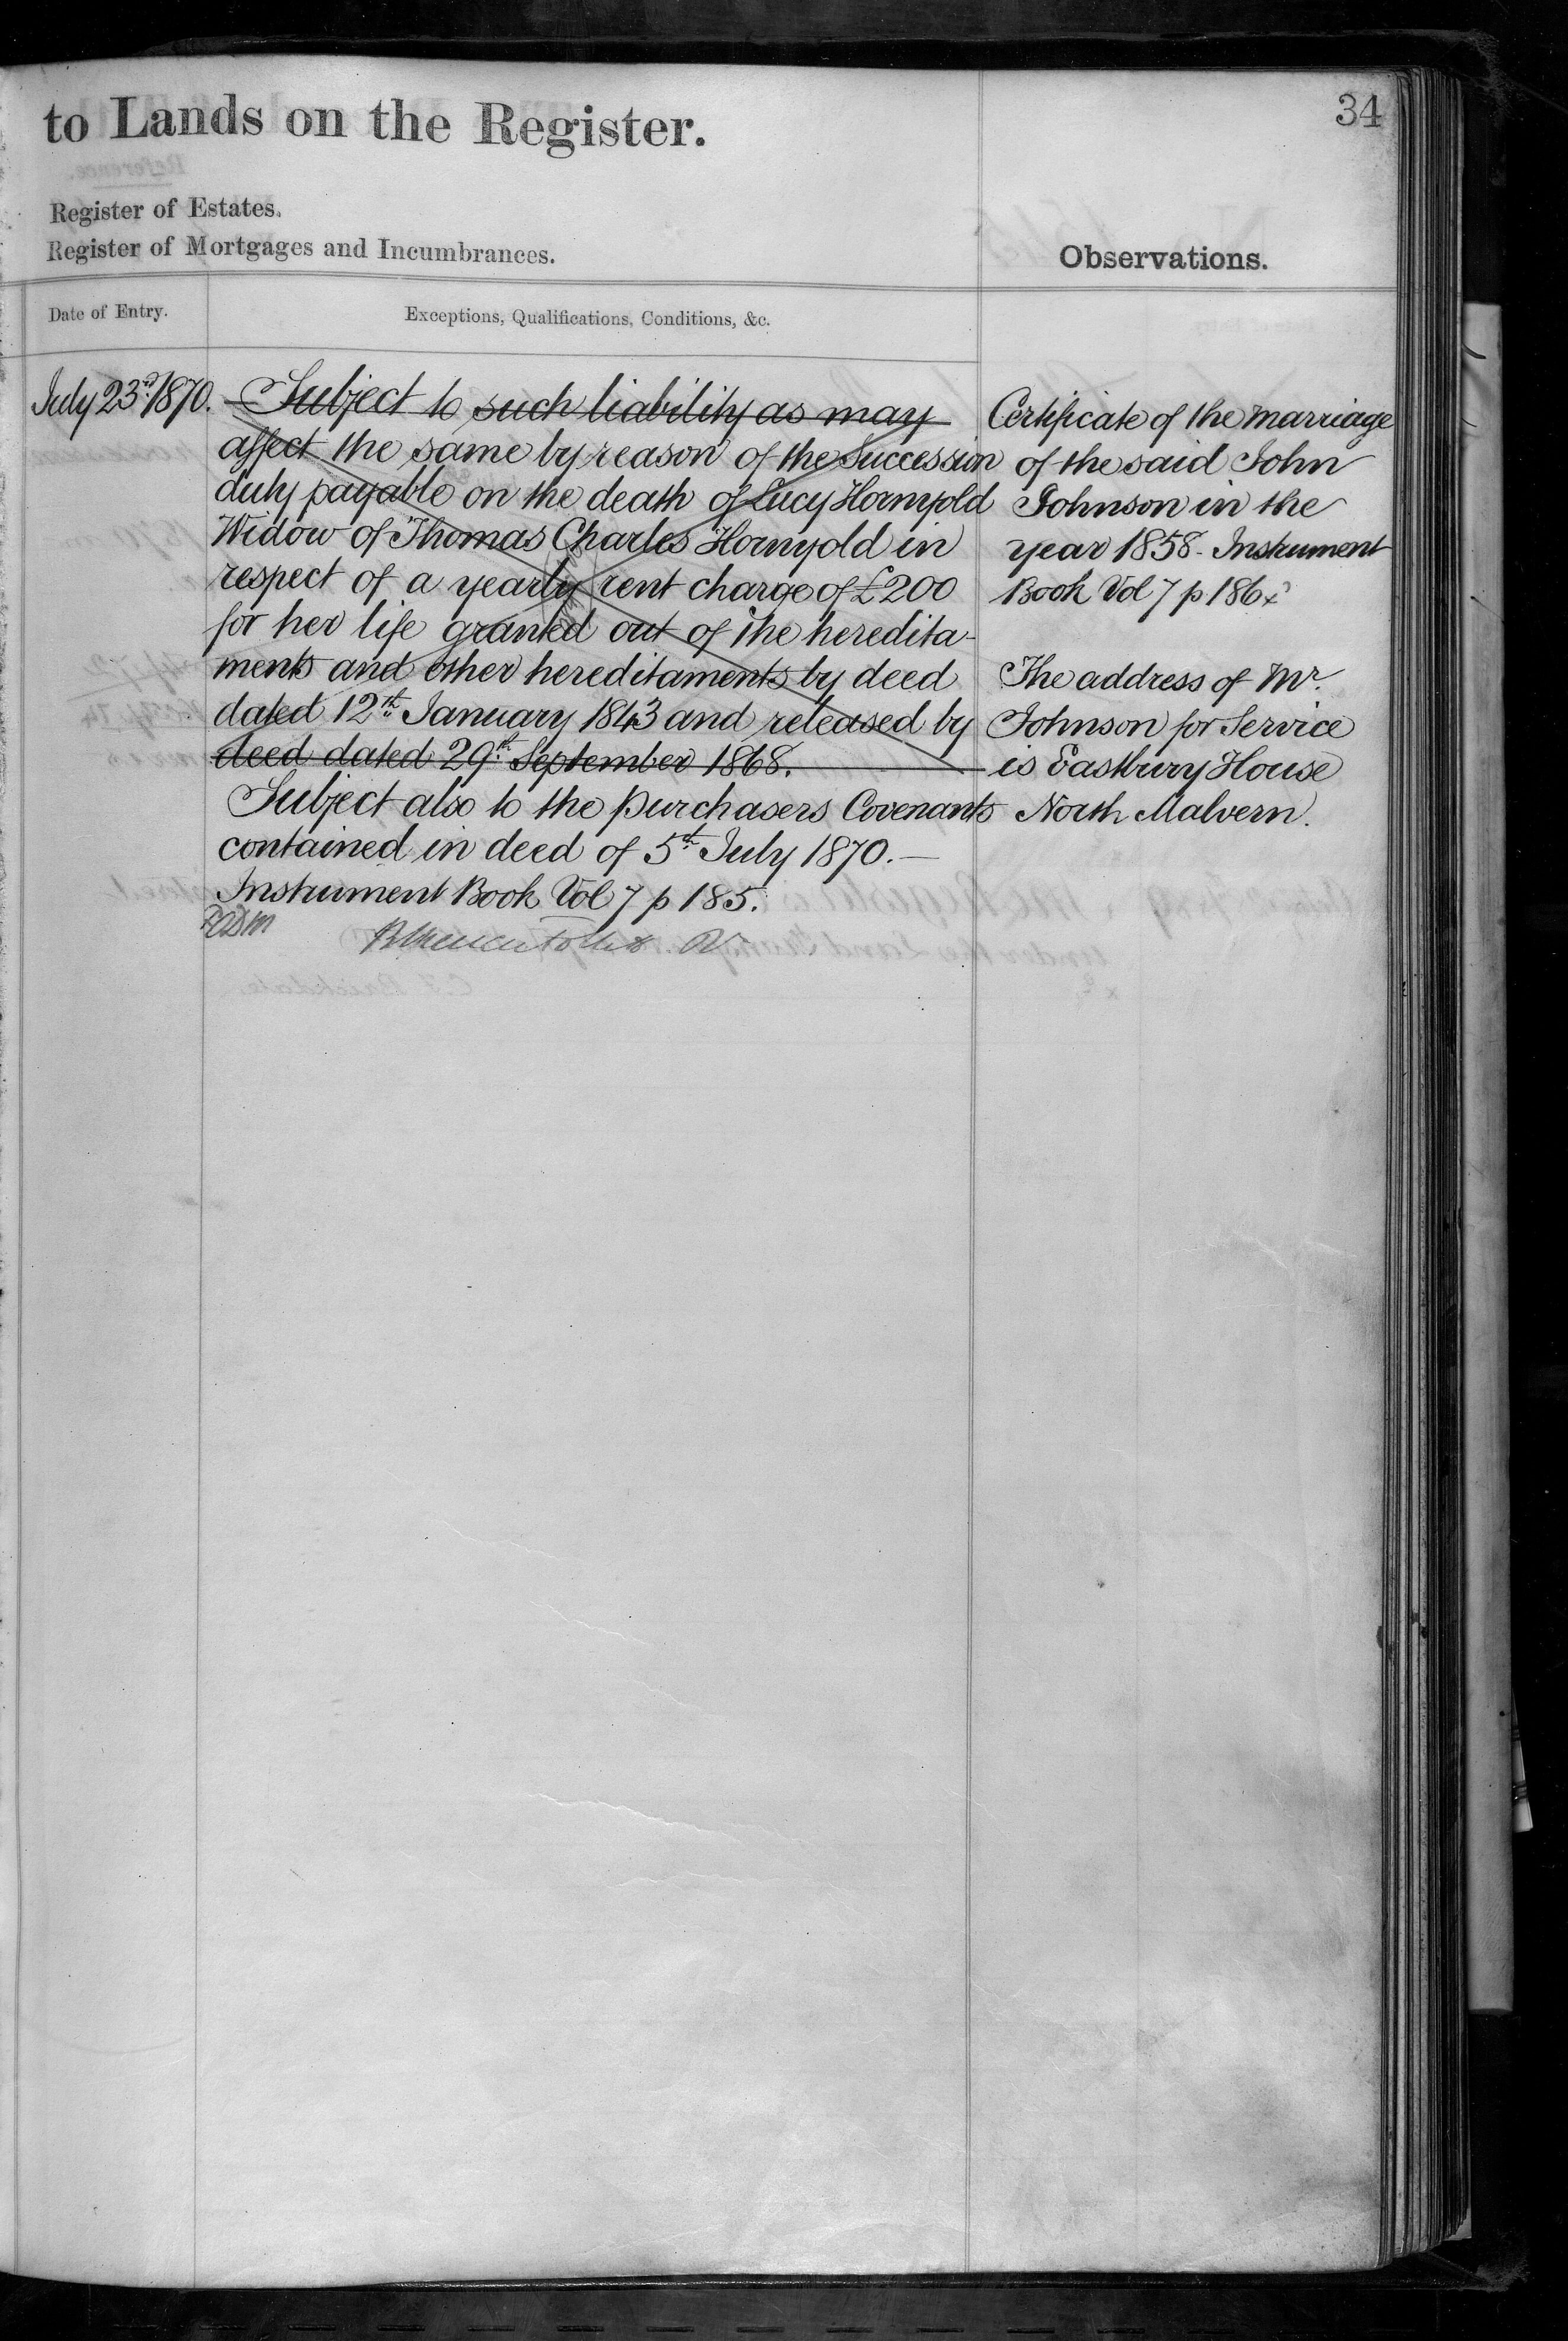 34
to Lands on the Register.
Register of Estates.
Register of Mortgages and Incumbrances.
Observations.
Date of Entry.
Exceptions, Qualifications, Conditions, &c.
July 23rd 1870.
Subject to such liability as may
affect the same by reason of the Succession
duty payable on the death of Lucy Hornyold
Widow of Thomas Charles Hornyold in
respect of a yearly rent charge of £200
for her life granted out of the heredita-
ments and other hereditaments by deed
dated 12th January 1843 and released by
deed dated 29th September 1868.
Subject also to the purchasers Covenants
contained in deed of 5th July 1870.—
Instrument Book Vol 7 p 185.
Certificate of the marriage
of the said John
Johnson in the
year 1858 - Instrument
Book Vol 7 p 186
The address of Mr.
Johnson for Service
is Eastbury House
North Malvern.